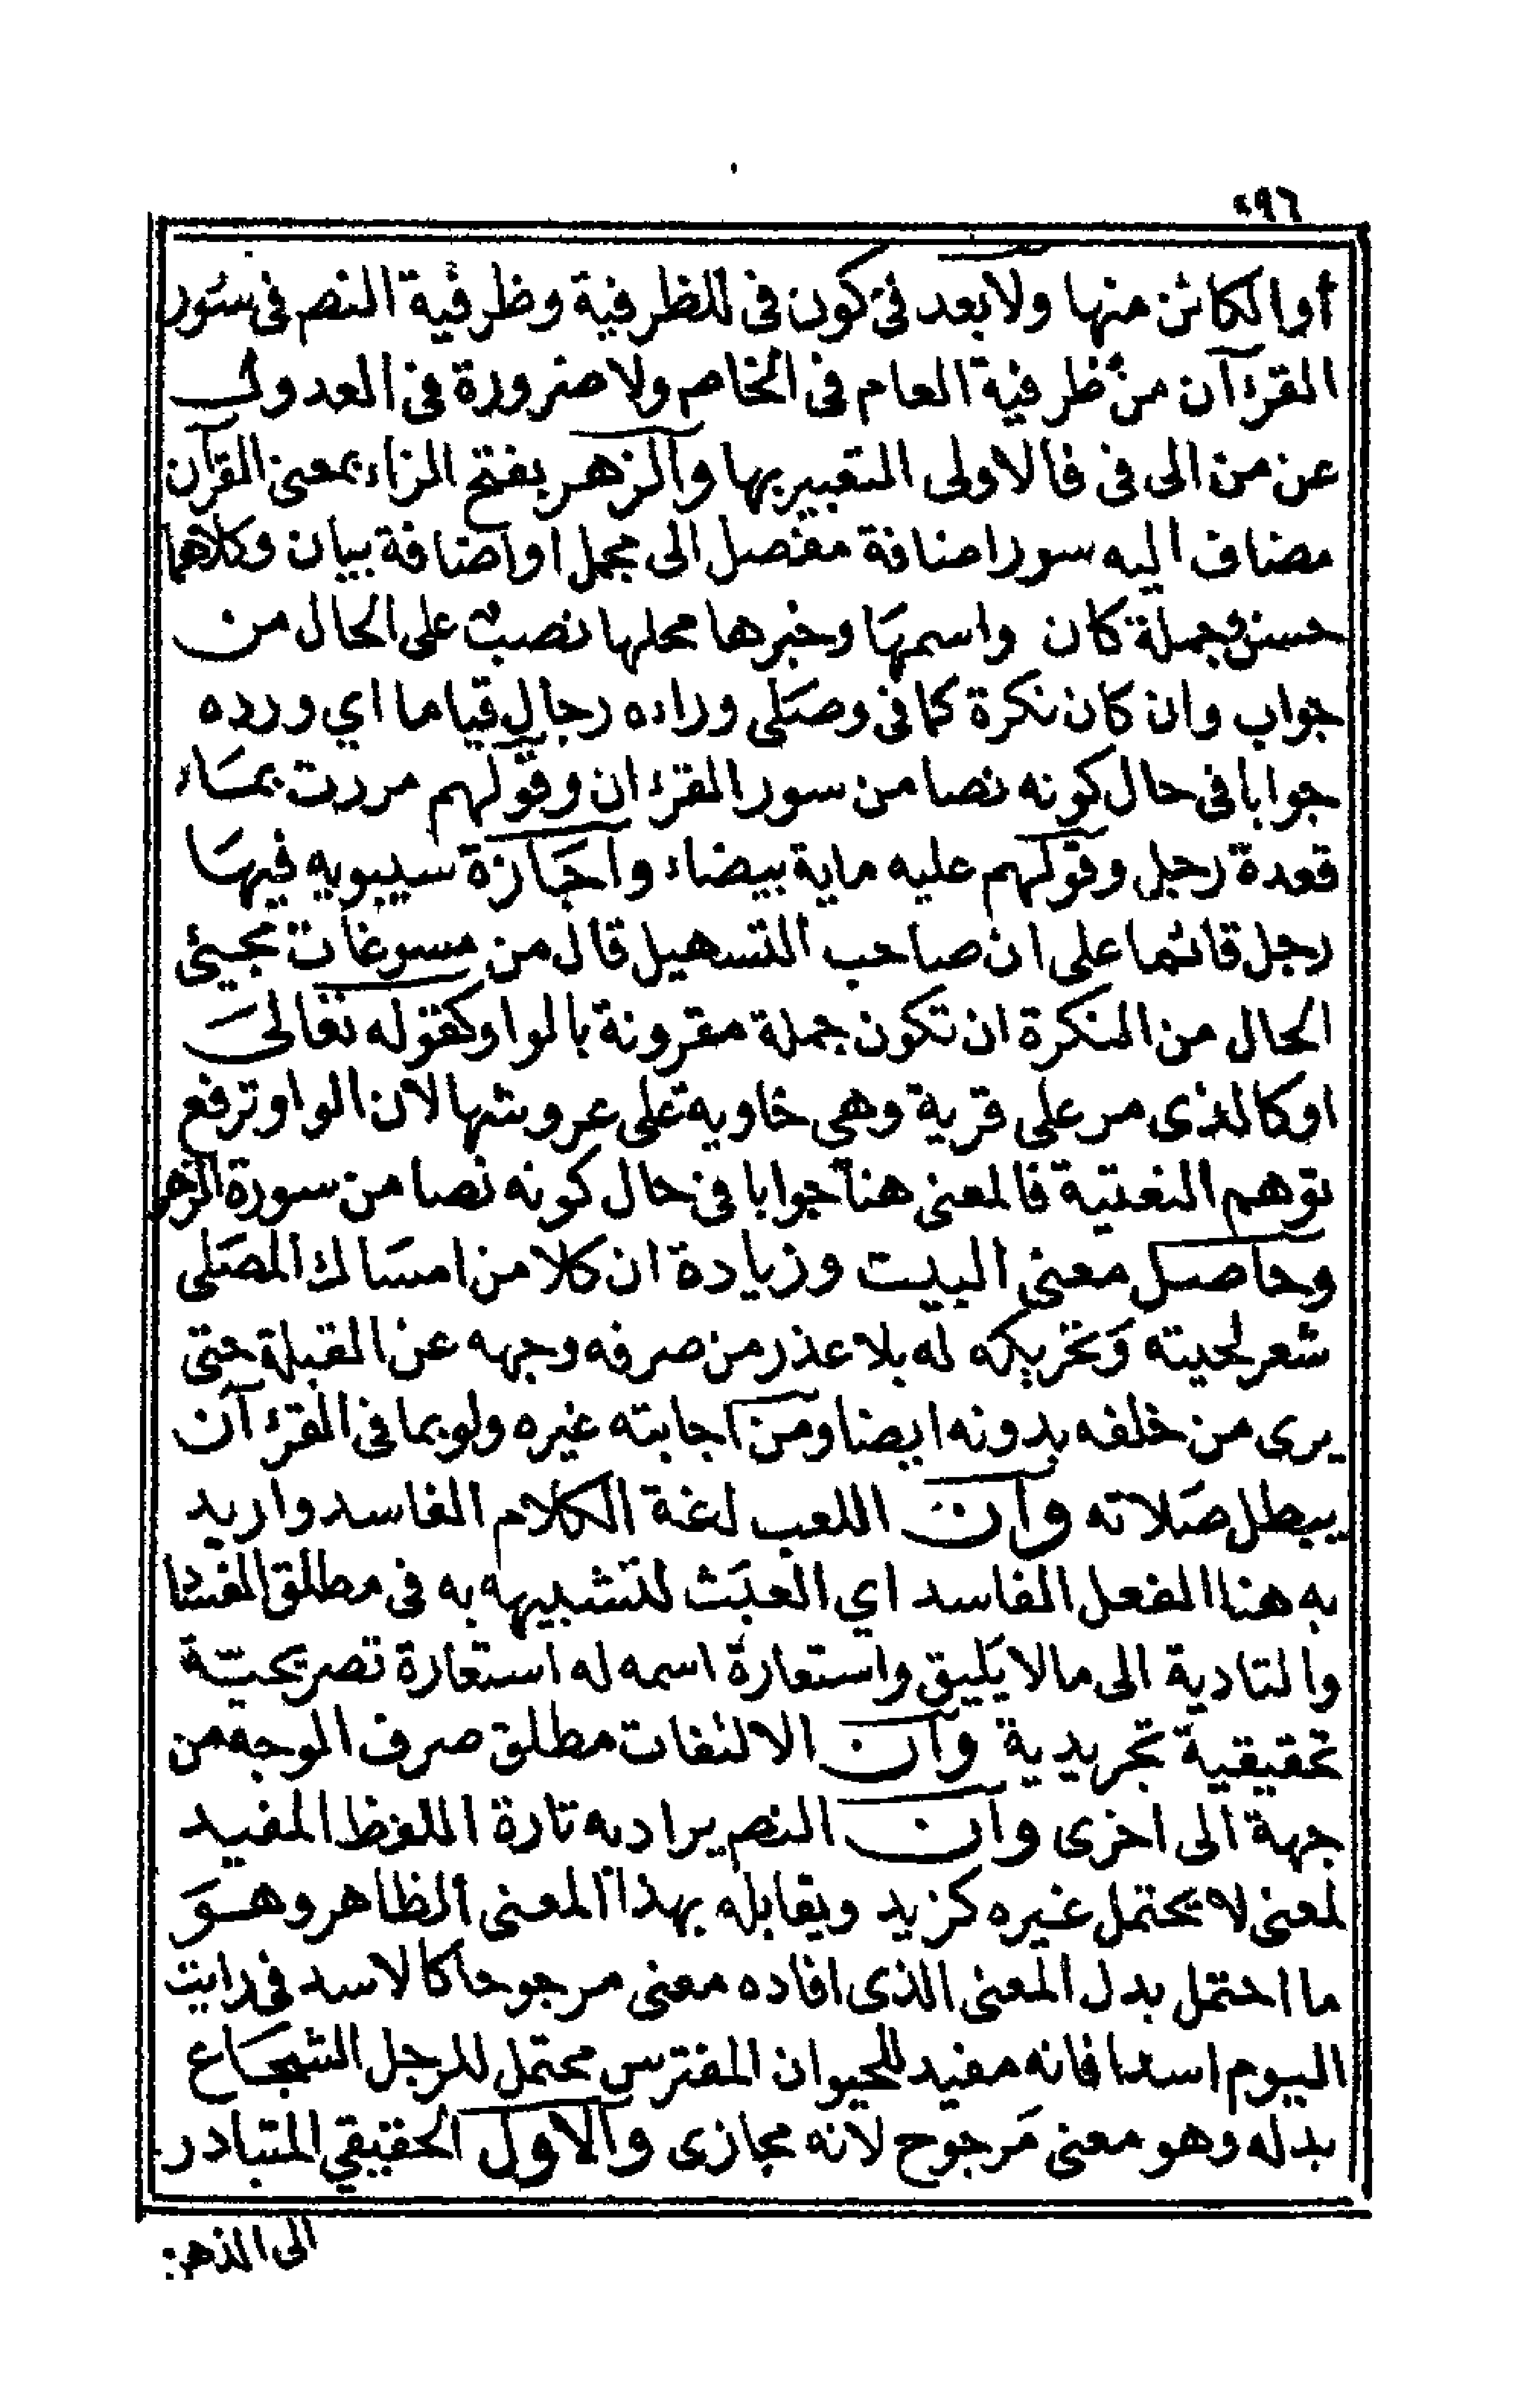 ٤٩٦
أو الكائن منها ولا بعد في كون في للظرفية وظرفية النص في سور
القرءآن من ظرفية العام في الخاص ولا ضرورة في العدول
عن من الى في فالاولى التعبير بها والزهر بفتح الزاء بمعنى القرآن
مضاف اليه سور اضافة مفصل الى مجمل او اضافة بيان وكلاهما
حسن وجملة كان واسمها وخبرها محلها نصب على الحال من
جواب وان كان نكرة كما في وصلى وراءه رجال قياما اي ورده
جوابا في حال كونه نصا من سور القرءان وقولهم مررت بماء
قعدة رجل وقولهم عليه ماية بيضاء واجازة سيبويه فيها
رجل قائما على ان صاحب التسهيل قال من مسوغات مجيئ
الحال من النكرة ان تكون جملة مقرونة بالواو كقوله تعالى
او كالذى مر على قرية وهي خاوية على عروشها لان الواو ترفع
توهم النعتية فالمعنى هنا جوابا في حال كونه نصا من سورة الزهر
وحاصل معنى البيت وزيادة ان كلا من امساك المصلى
شعر لحيته وتحريكه له بلا عذر من صرفه وجهه عن القبلة حتى
يرى من خلفه بدونه ايضا ومن اجابته غيره ولو بما في القرءآن
يبطل صلاته وان اللعب لغة الكلام الفاسد واريد
به هنا الفعل الفاسد اي العبث لتشبيهه به في مطلق الفساد
والتادية الى ما لا يليق واستعارة اسمه له استعارة تصريحية
تحقيقية تجريدية وان الالتفات مطلق صرف الوجه من
جهة الى اخرى وان النص يراد به تارة اللفظ المفيد
لمعنى لا يحتمل غيره كزيد ويقابله بهذا المعنى الظاهر وهو
ما احتمل بدل المعنى الذى افاده معنى مرجوحا كالاسد في رايت
اليوم اسدا فانه مفيد للحيوان المفترس محتمل للرجل الشجاع
بدله وهو معنى مرجوح لانه مجازى والاول الحقيقي المتبادر
الى الذهن